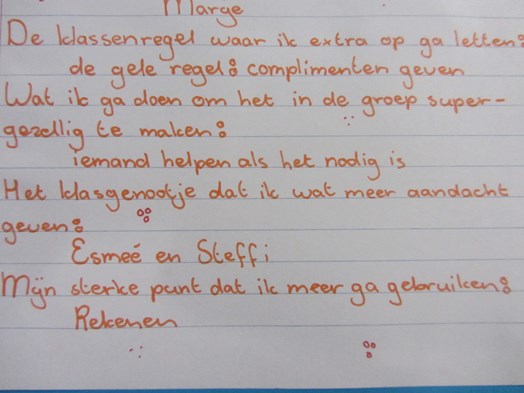 Marge
De klassenregel waar ik extra op ga letten:
de gele regel: complimenten geven
Wat ik ga doen om het in de groep super-
gezellig te maken:
iemand helpen als het nodig is
Het klasgenootje dat ik wat meer aandacht
geven:
Esmeé en Steffi
Mijn sterke punt dat ik meer ga gebruiken:
Rekenen